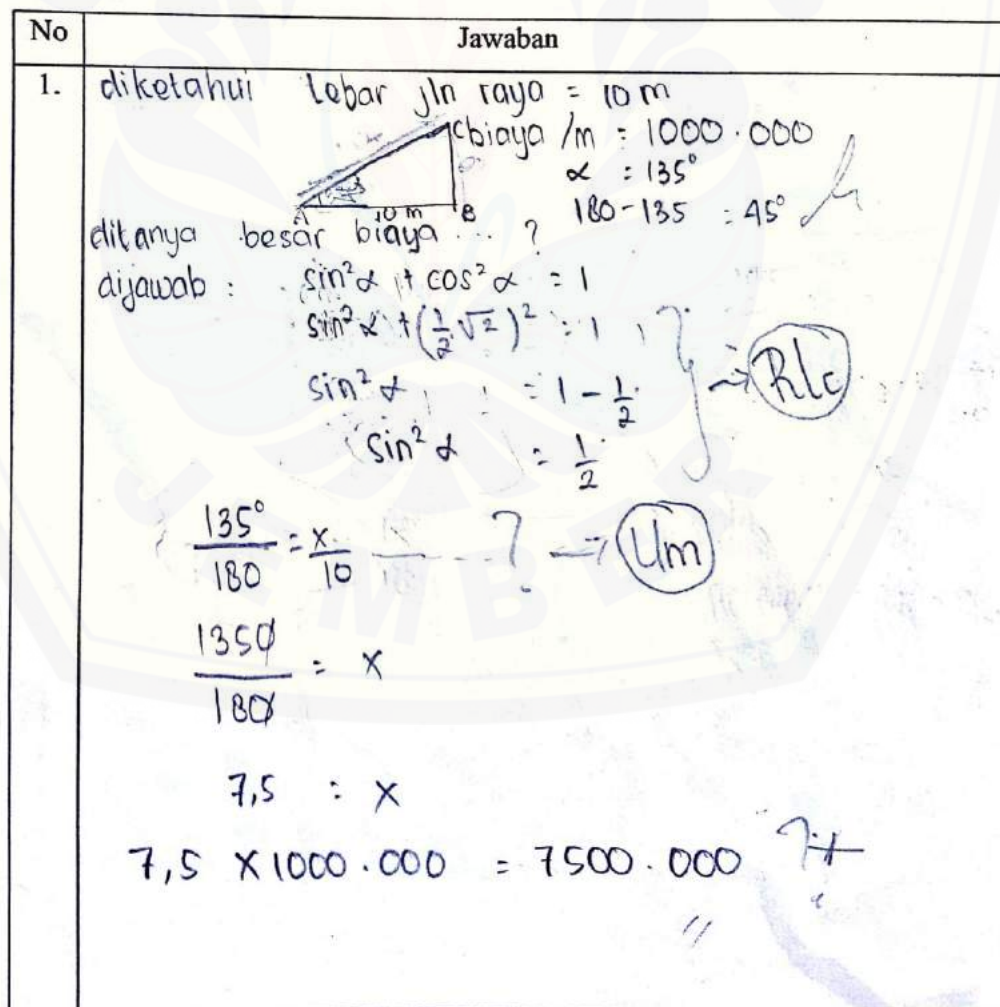 No Jawaban
1. diketahui lebar jln raya = 10 m
C biaya /m : 1000.000
α : 135°
A 10 m B 180-135 : 45°
ditanya besar biaya ... ?
dijawab : sin²α + cos²α = 1
sin²α + (1/2 √2)² = 1
sin²α = 1 - 1/2
Rlc
sin²α = 1/2
135°/180 = x/10 ? → Um
1350/180 = x
7,5 = x
7,5 X 1000.000 = 7500.000
JEMBER